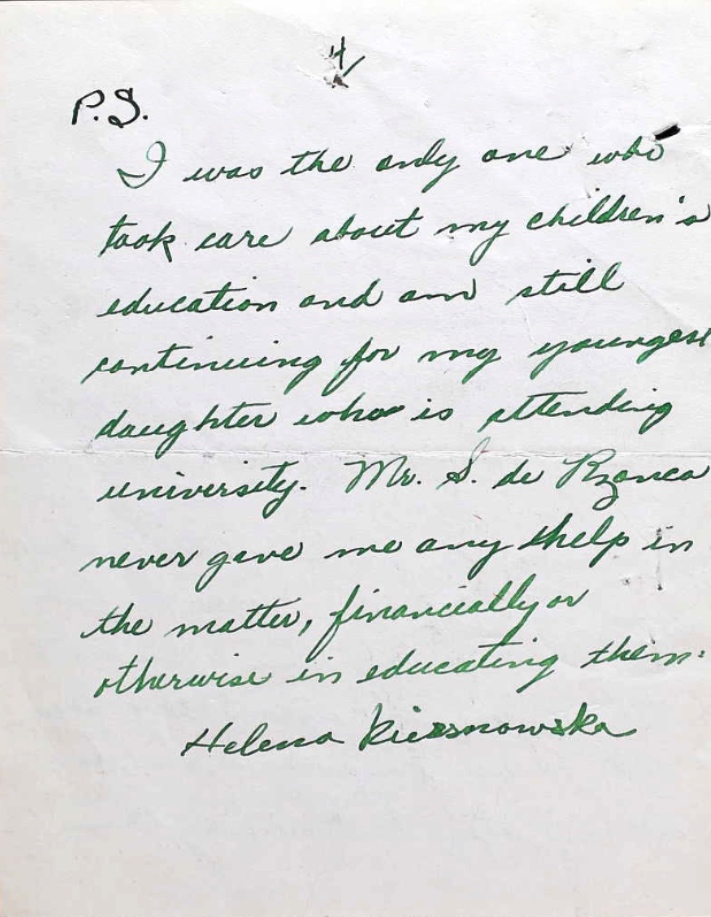 4/
P.S.
I was the only one who
took care about my children's
education and am still
continuing for my youngest
daughter who is attending
university. Mr. S. de Rzonca
never gave me any help in
the matter, financially or
otherwise in educating them.
Helena